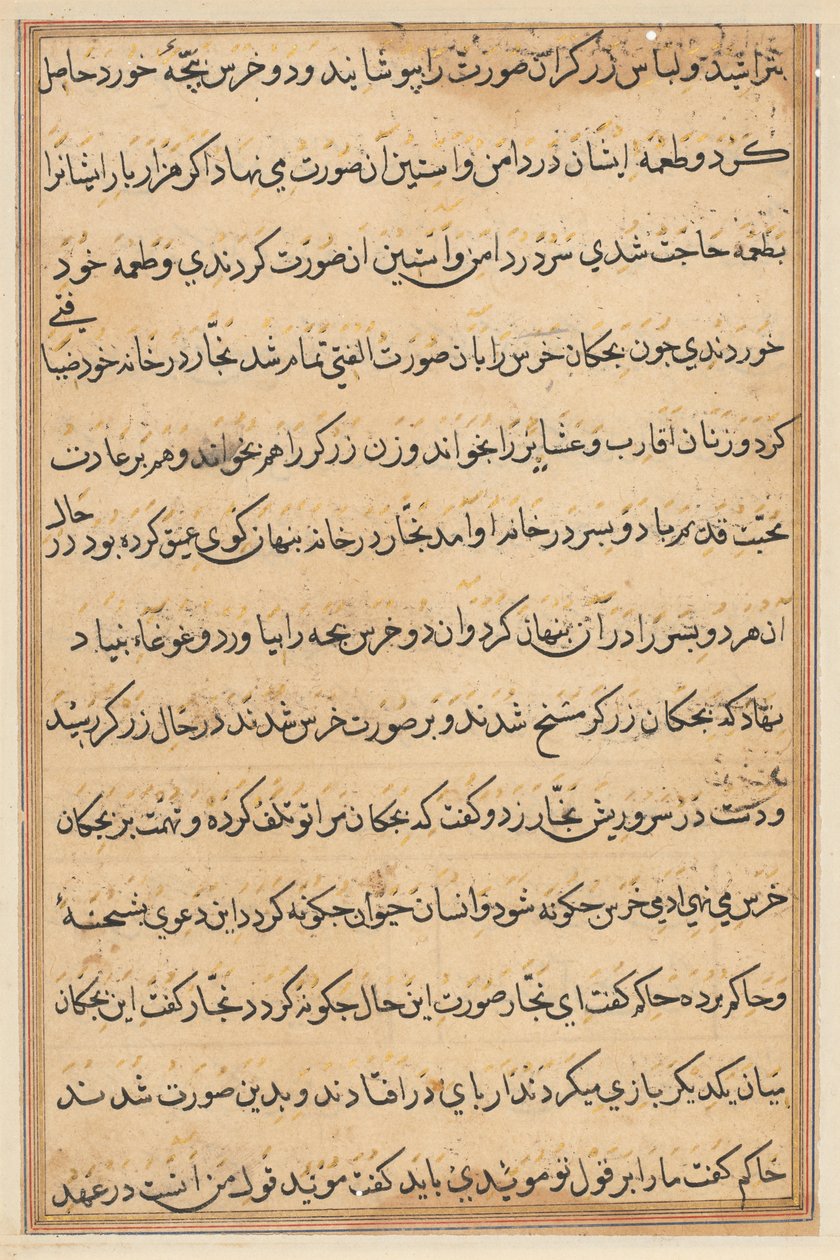 بتراشید و لباس زرکران صورت را بپوشانید و دو خرس بچّهٔ خورد حاصل
کرد و طعمه ایشان در دامن و استین آن صورت می نهاد اکر هزار بار ایشانرا
بطعمه حاجت شدی سر در دامن و استین ان صورت کردندی و طعمه خود
خوردندی جون بجکان خرس را بان صورت الفتی تمام شد نجّار در خانه خود ضیافتی
کرد و زنان اقارب و عشایر را بخواند و زن زرکر را هم بخواند و هم بر عادت
محبّت قدیم با دو بسر در خانه او امد نجّار در خانه بنهان کوی عمیق کرده بود در حال
آن هر دو بسر را در آن بنهان کرد و ان دو خرس بجه را بیاورد و غوغاء بنیاد
نهاد که بجکان زرکر مسخ شدند و بر صورت خرس شدند در حال زرکر رسید
و دست در سر و ریش نجّار زد و کفت که بجکان مرا تو تلف کرده و تهمت بر بجکان
خرس می نهی ادمی خرس جکونه شود و انسان حیوان جکونه کردد این دعوی بشحنهٔ
و حاکم برده حاکم کفت ای نجّار صورت این حال جکونه کردد نجّار کفت این بجکان
میان یکدیکر بازی میکردند از بای در افتادند و بدین صورت شدند
حاکم کفت ما را بر قول تو مویّدی باید کفت موید قول من انست در عهد